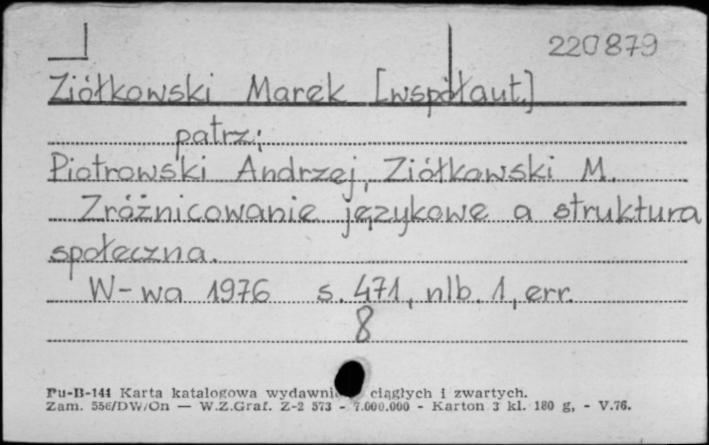 220879
Ziółkowski Marek [współaut.]
patrz:
Piotrowski Andrzej, Ziółkowski M.
Zróżnicowanie językowe a struktura
społeczna.
W-wa 1976 s. 471, nlb. 1, err.
8
Pu-B-144 Karta katalogowa wydawni ciągłych i zwartych.
Zam. 556/DW/On — W.Z.Graf. Z-2 573 - 7.000.000 - Karton 3 kl. 180 g, - V.76.